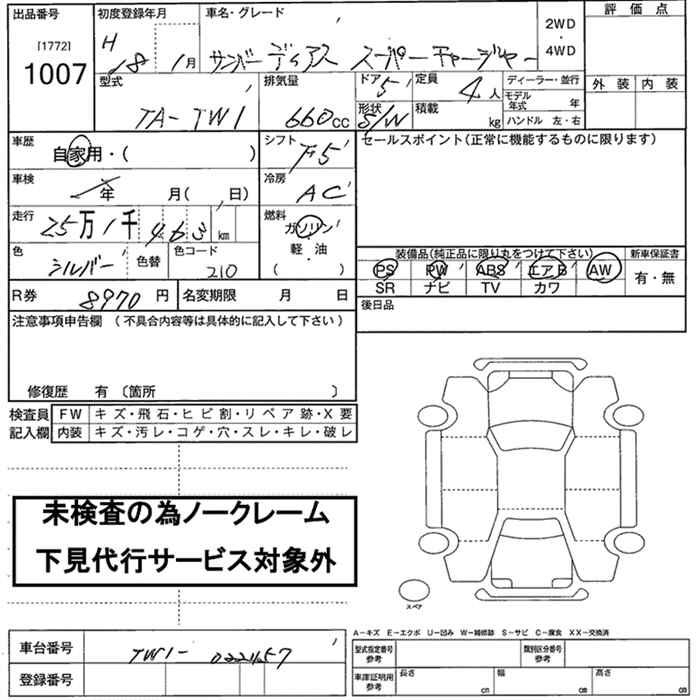 出品番号 初度登録年月 車名・グレード 2WD ・ 4WD 評価点
[1772]
1007
H 18年 1月 サンバー ディアス スーパーチャージャー
型式 排気量 ドア 5 定員 4人 ディーラー・並行 外装 内装
モデル年式 年
TA-TW1 660cc 形状 S/W 積載 kg ハンドル 左・右
車歴 シフト セールスポイント(正常に機能するものに限ります)
自家用・( ) F5
車検 冷房
年 月( 日) AC
走行 燃料
25万1千463km ガソリン
色 色替 色コード 軽・油
シルバー 210 ( ・ )
装備品(純正品に限り丸をつけて下さい) 新車保証書
PS PW ABS エアB AW 有・無
SR ナビ TV カワ
R券 8970円 名変期限 月 日
後日品
注意事項申告欄 (不具合内容等は具体的に記入して下さい)
修復歴 有〔箇所 〕
検査員 FW キズ・飛石・ヒビ割・リペア跡・X要
記入欄 内装 キズ・汚レ・コゲ・穴・スレ・キレ・破レ
未検査の為ノークレーム
下見代行サービス対象外
スペア
A−キズ E−エクボ U−凹み W−補修跡 S−サビ C−腐食 XX−交換済
車台番号 TW1-
型式指定番号 参考 類別区分番号 参考
登録番号
車庫証明用 参考 長さ cm 幅 cm 高さ cm